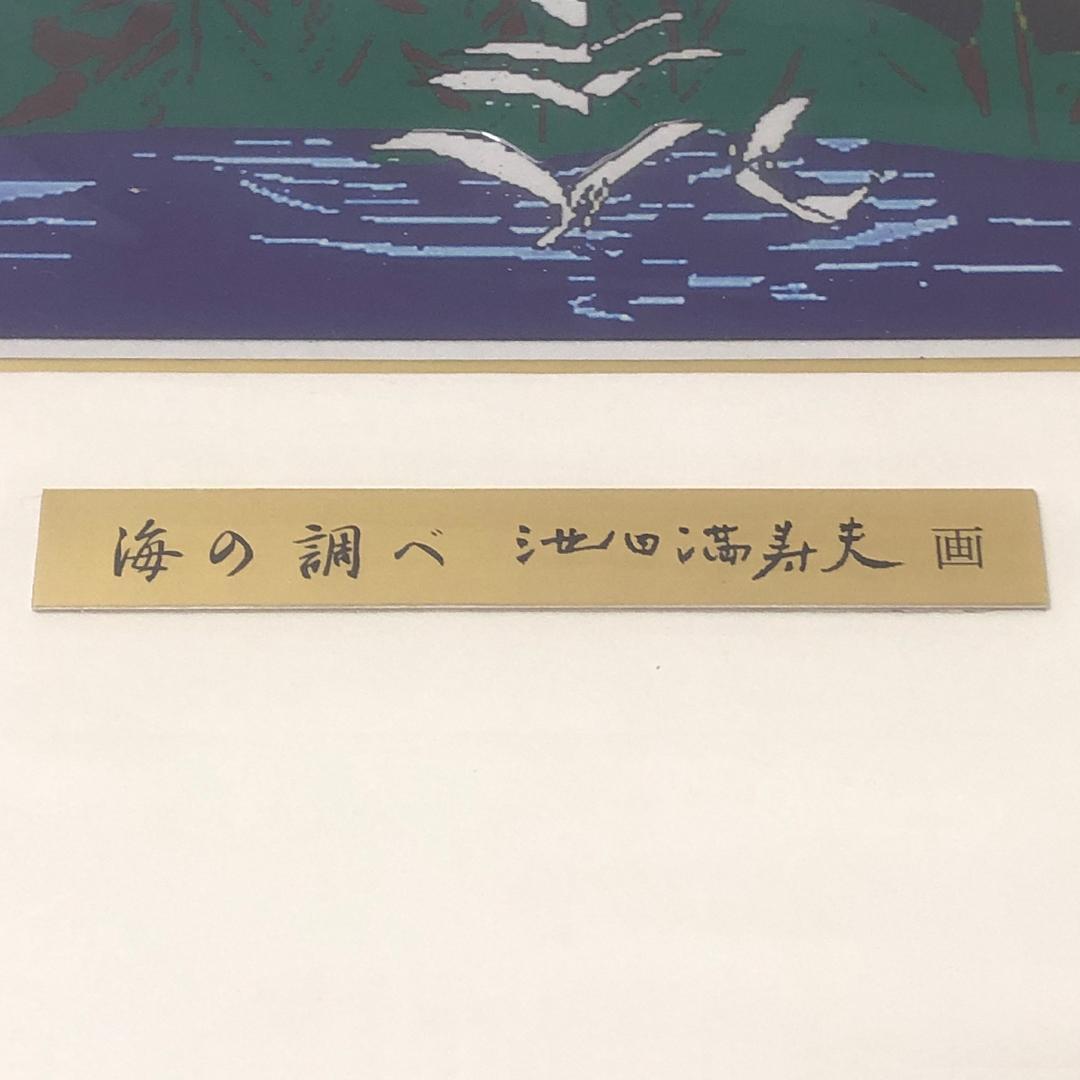 海の調べ 池田満寿夫 画